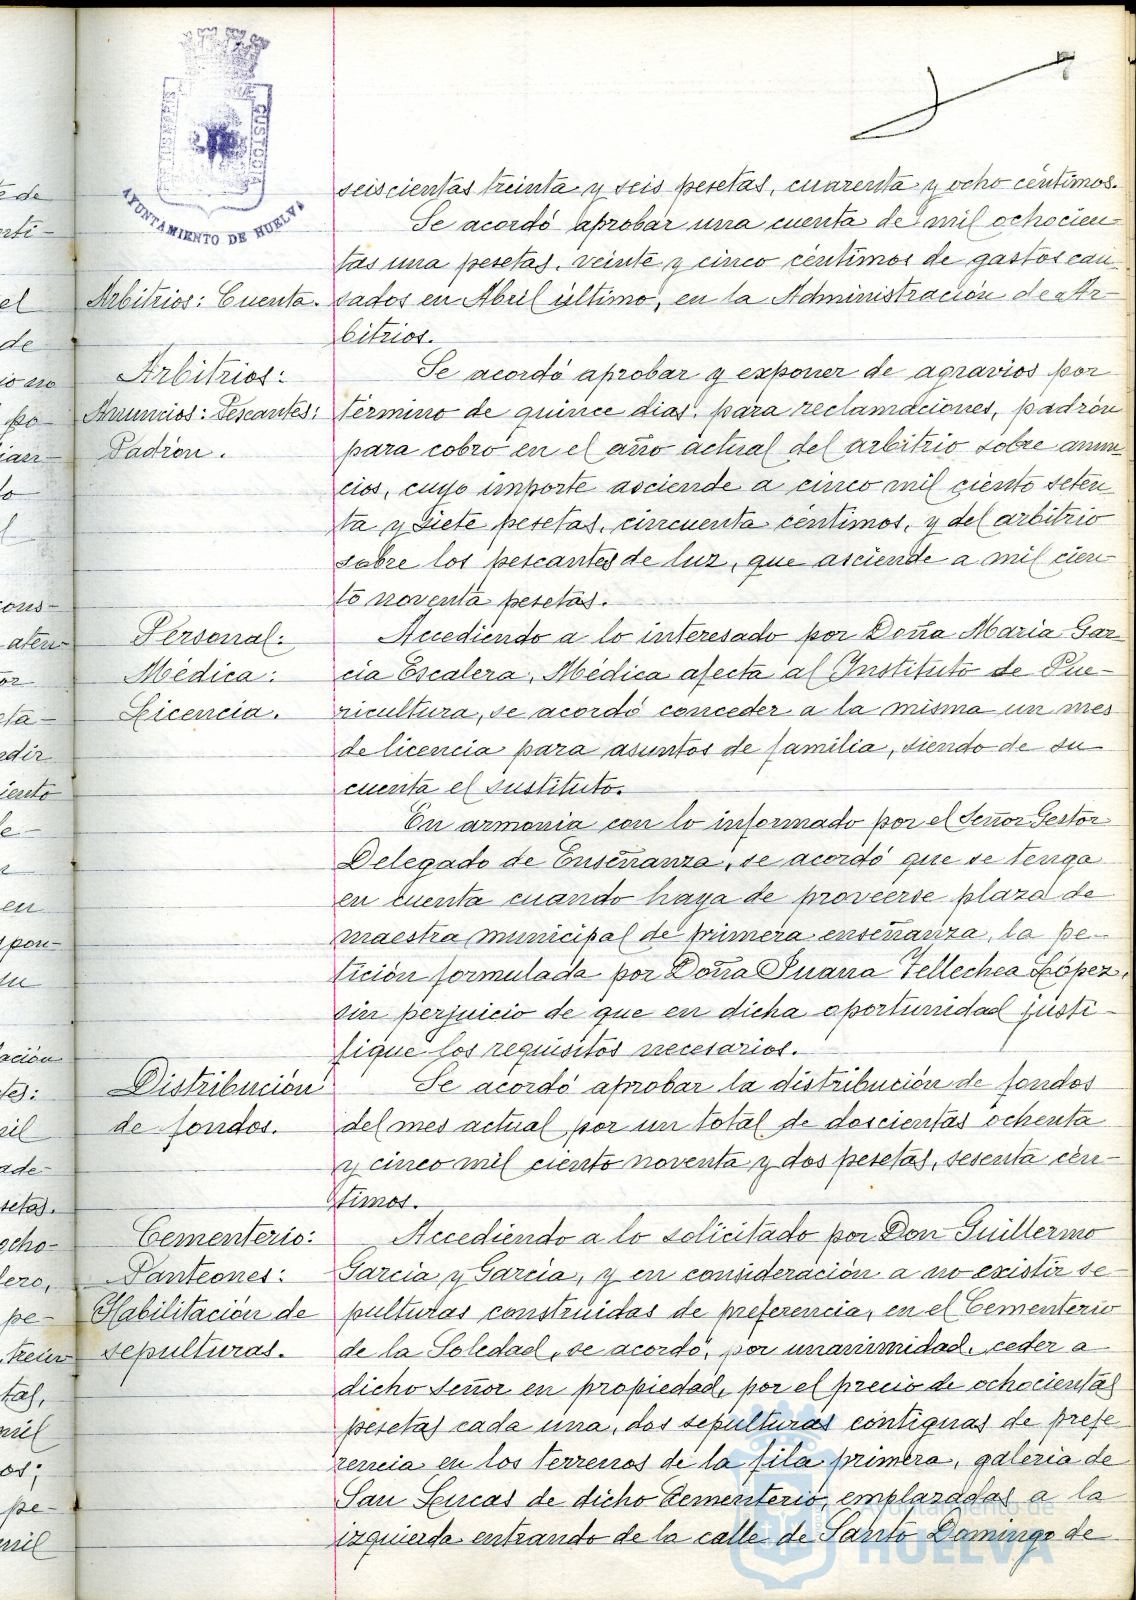 7
seiscientas treinta y seis pesetas, cuarenta y ocho céntimos.
Se acordó aprobar una cuenta de mil ochocien-
tas una pesetas, veinte y cinco céntimos de gastos cau-
Arbitrios: Cuenta.
sados en Abril último, en la Administración de Ar-
bitrios.
Arbitrios:
Anuncios: Pescantes:
Padrón.
Se acordó aprobar y exponer de agravios por
término de quince dias, para reclamaciones, padrón
para cobro en el año actual del arbitrio sobre anun-
cios, cuyo importe asciende a cinco mil ciento seten-
ta y siete pesetas, cincuenta céntimos, y del arbitrio
sobre los pescantes de luz, que asciende a mil cien-
to noventa pesetas.
Personal:
Médica:
Licencia.
Accediendo a lo interesado por Doña Maria Gar-
cia Escalera, Médica afecta al Instituto de Pue-
ricultura, se acordó conceder a la misma un mes
de licencia para asuntos de familia, siendo de su
cuenta el sustituto.
En armonia con lo informado por el Señor Gestor
Delegado de Enseñanza, se acordó que se tenga
en cuenta cuando haya de proveerse plaza de
maestra municipal de primera enseñanza, la pe-
tición formulada por Doña Juana Tellechea López,
sin perjuicio de que en dicha oportunidad justi-
fique los requisitos necesarios.
Distribución
de fondos.
Se acordó aprobar la distribución de fondos
del mes actual por un total de doscientas ochenta
y cinco mil ciento noventa y dos pesetas, sesenta cén-
timos.
Cementerio:
Panteones:
Habilitación de
sepulturas.
Accediendo a lo solicitado por Don Guillermo
Garcia y Garcia, y en consideración a no existir se-
pulturas construidas de preferencia, en el Cementerio
de la Soledad, se acordó, por unanimidad, ceder a
dicho señor en propiedad, por el precio de ochocientas
pesetas cada una, dos sepulturas contiguas de prefe
rencia en los terrenos de la fila primera, galeria de
San Lucas de dicho Cementerio, emplazadas a la
izquierda entrando de la calle de Santo Domingo de
AYUNTAMIENTO DE HUELVA
CUSTODIA
Ayuntamiento de
HUELVA